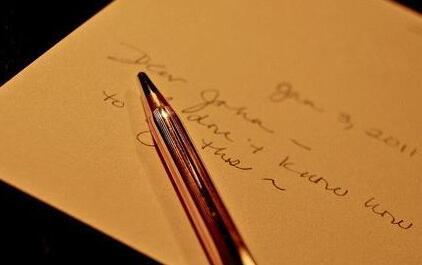 Jan 3, 2011
Dear John –
don't know how
to this ~